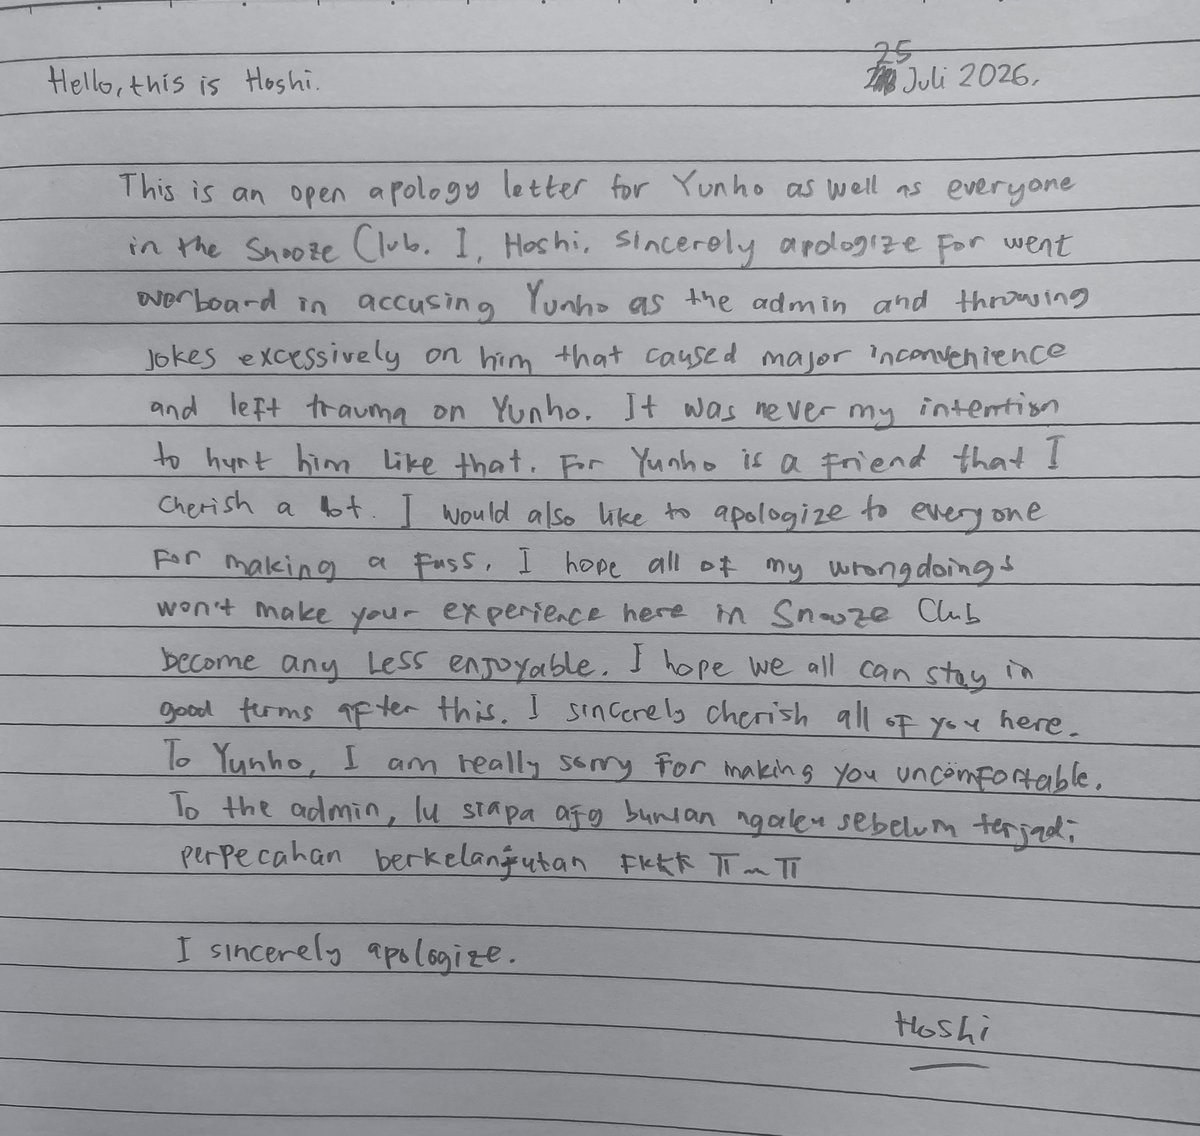 Hello, this is Hoshi.
25 Juli 2026.
This is an open apology letter for Yunho as well as everyone
in the Snooze Club. I, Hoshi, sincerely apologize for went
overboard in accusing Yunho as the admin and throwing
jokes excessively on him that caused major inconvenience
and left trauma on Yunho. It was never my intention
to hurt him like that. For Yunho is a friend that I
cherish a lot. I would also like to apologize to everyone
for making a fuss. I hope all of my wrongdoings
won't make your experience here in Snooze Club
become any less enjoyable. I hope we all can stay in
good terms after this. I sincerely cherish all of you here.
To Yunho, I am really sorry for making you uncomfortable.
To the admin, lu siapa ajg buruan ngaku sebelum terjadi
perpecahan berkelanjutan ㅠ~ㅠ
I sincerely apologize.
Hoshi